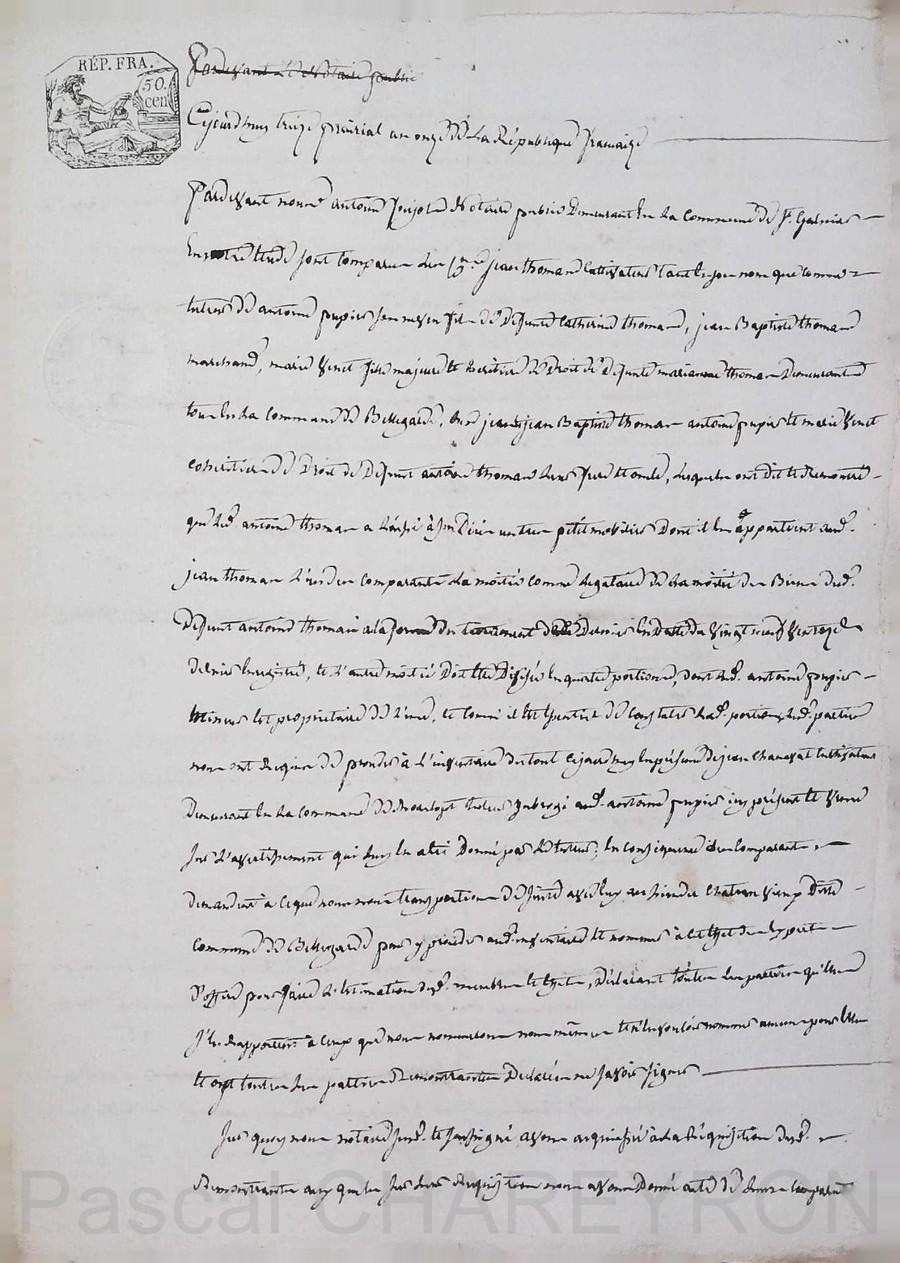 RÉP. FRA.
50.
cen
Pardevant le Notaire public
Cejourdhuy treize prairial an onze de La République française
Pardevant nous antoine pujol Notaire public Demeurant En La Commune de St. Galmier
En notre Etude sont Comparus Jean thomas Cultivateur tant En son nom que Comme
tuteur de antoine pupier son neveu fils de Defunte Catherine thomas, jean Baptiste thomas
marchand, marie Vincent fille majeure et heritiere de Droit de Defunte marianne thomas Demeurants
tous En La Commune de Bellegarde, jean Baptiste thomas antoine pupier et marie Vincent
coheritiers de Droit de Defunt antoine thomas Leur frere et oncle, Lesquels ont Dit et Remontré
que Led. antoine thomas a Laissé à son Décès un tres petit mobilier Dont il En appartient aud.
jean thomas L'un des Comparants La moitié comme Legataire de La moitié des Biens dud.
Defunt antoine thomas a la forme du testament Dernier En Datte du Vingt
dernier Enregistré, et L'autre moitié Doit Etre Divisée En quatre portions, dont Led. antoine pupier
mineur Est propriétaire de L'une, et comme il Est de Constater Lad. portion Led. parties
nous ont Requis de proceder à L'inventaire du tout Cejourdhuy En présence de jean Cultivateur
Demeurant En La Commune de tuteur subrogé aud. antoine pupier icy présent et venu
sur L'avertissement qui Luy En a été Donné par Led. tuteur; En Consequence Les Comparants
demandent à ce que nous nous transportions de suite avec Eux au Lieu de Chatrain Vieux Ditte
Commune de Bellegarde pour y proceder aud. inventaire et nommer à cet Effet des Experts
D'office pour faire L'Estimation desd. meubles et Effets, Déclarant toutes Les parties qu'Elles
s'En Rapportent à Ceux que nous nommerons nous même et n'En vouloir nommer aucuns pour Elles
Et ont toutes Les parties Remontrantes Declaré ne savoir signer
Sur quoy nous notaire sousd. et soussigné avons acquiescé à La Réquisition desd.
Remontrants auxquels sur Leur Requisition nous avons Donné acte de Leurs Comparut
Pascal CHAREYRON